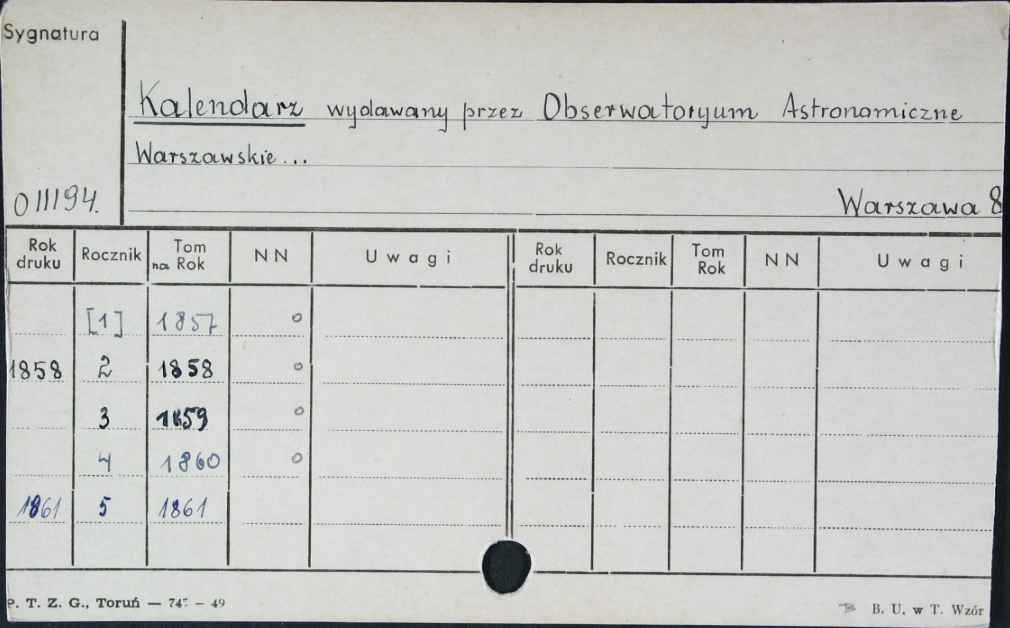 Sygnatura
Kalendarz wydawany przez Obserwatoryum Astronomiczne
Warszawskie...
O III 194.
Warszawa 8
Rok druku Rocznik Tom na Rok NN Uwagi Rok druku Rocznik Tom Rok NN Uwagi
[1] 1857 o
1858 2 1858 o
3 1859 o
4 1860 o
1861 5 1861
P. T. Z. G., Toruń — 74 – 49
B. U. w T. Wzór